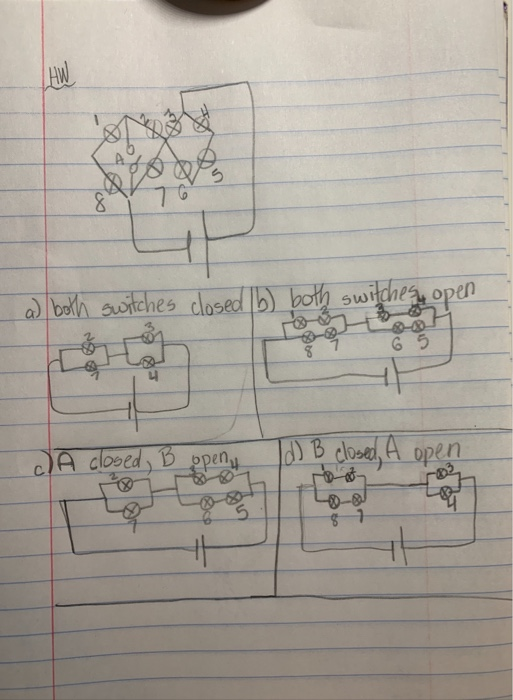 HW
1 2 3 4
A
8 7 6 5
a) both switches closed
2 3
7 4
b) both switches open
1 2 3 4
8 7 6 5
c) A closed, B open
2 3 4
7 6 5
d) B closed, A open
1 2 3
8 7 4